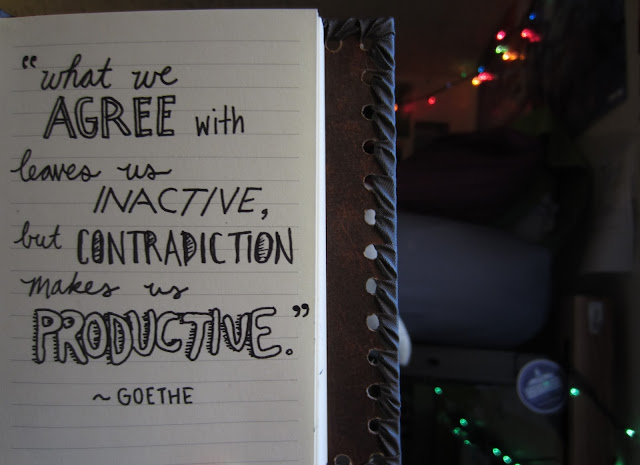 “what we
AGREE with
leaves us
INACTIVE,
but CONTRADICTION
makes us
PRODUCTIVE.”
~ GOETHE